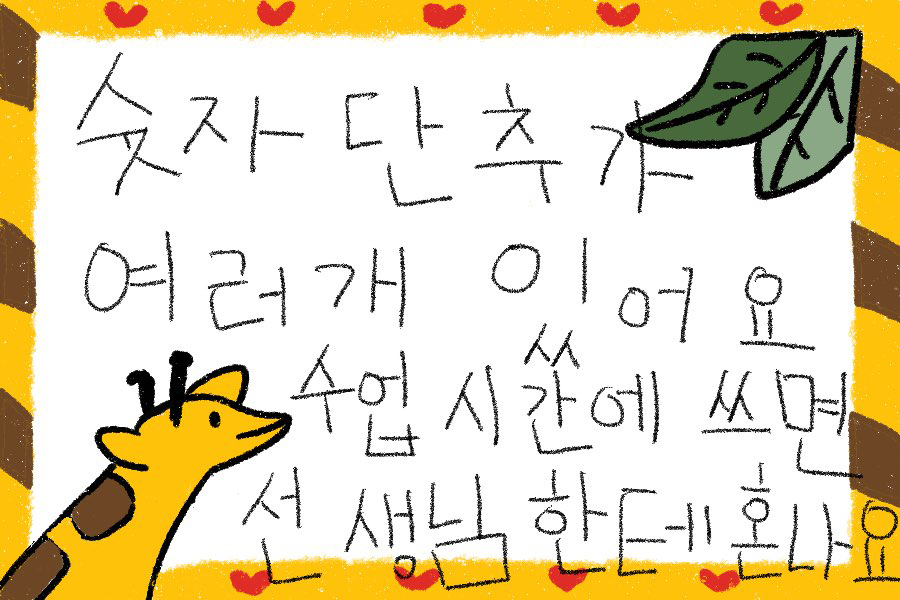 숫자 단추가
여러개 있어요
수업 시간에 쓰면
선생님한테 혼나요